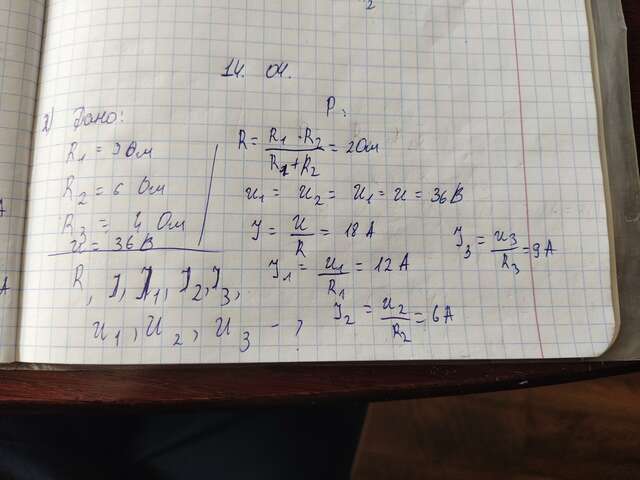 14. 04.
2) Дано:
R1 = 3 Ом
R2 = 6 Ом
R3 = 4 Ом
U = 36 В
R, I, I1, I2, I3,
U1, U2, U3 - ?
Р:
R = R1 · R2 / R1 + R2 = 2 Ом
U1 = U2 = U1 = U = 36 В
I = U / R = 18 А
I1 = U1 / R1 = 12 А
I2 = U2 / R2 = 6 А
I3 = U3 / R3 = 9 А